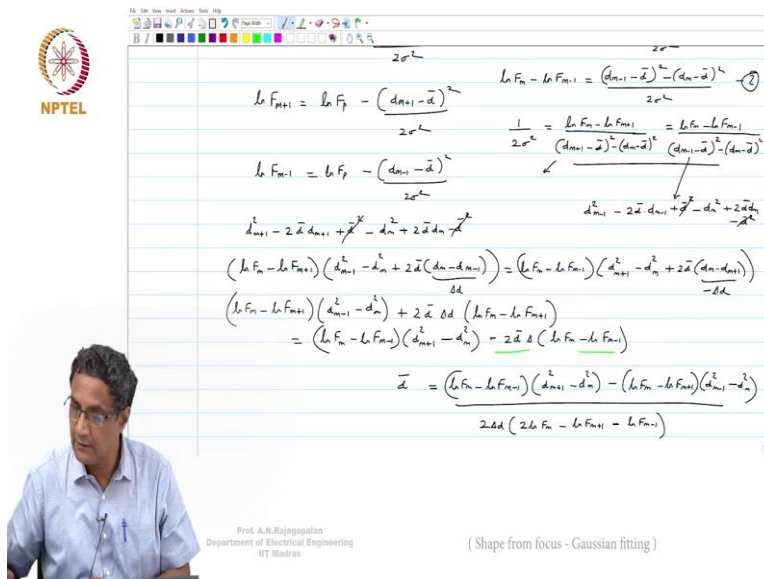 File Edit View Insert Actions Tools Help
Page Width
B I
NPTEL
2σ²
2σ²
ln Fm+1 = ln Fp - (dm+1 - d̄)² / 2σ²
ln Fm - ln Fm-1 = ((dm-1 - d̄)² - (dm - d̄)²) / 2σ² - ②
1/2σ² = (ln Fm - ln Fm+1) / ((dm+1 - d̄)² - (dm - d̄)²) = (ln Fm - ln Fm-1) / ((dm-1 - d̄)² - (dm - d̄)²)
ln Fm-1 = ln Fp - (dm-1 - d̄)² / 2σ²
d²m-1 - 2d̄ . dm-1 + d̄² - dm² + 2d̄dm
- d̄²
d²m+1 - 2d̄ dm+1 + d̄² - dm² + 2d̄ dm - d̄²
(ln Fm - ln Fm+1) (d²m-1 - d²m + 2d̄ (dm - dm-1)) = (ln Fm - ln Fm-1) (d²m+1 - d²m + 2d̄ (dm - dm+1))
Δd
-Δd
(ln Fm - ln Fm+1) (d²m-1 - d²m) + 2d̄ Δd (ln Fm - ln Fm+1)
= (ln Fm - ln Fm-1) (d²m+1 - d²m) - 2d̄ Δ (ln Fm - ln Fm-1)
d̄ = ((ln Fm - ln Fm-1) (d²m+1 - d²m) - (ln Fm - ln Fm+1) (d²m-1 - d²m)) / 2Δd (2 ln Fm - ln Fm+1 - ln Fm-1)
Prof. A.N.Rajagopalan
Department of Electrical Engineering
IIT Madras
( Shape from focus - Gaussian fitting )